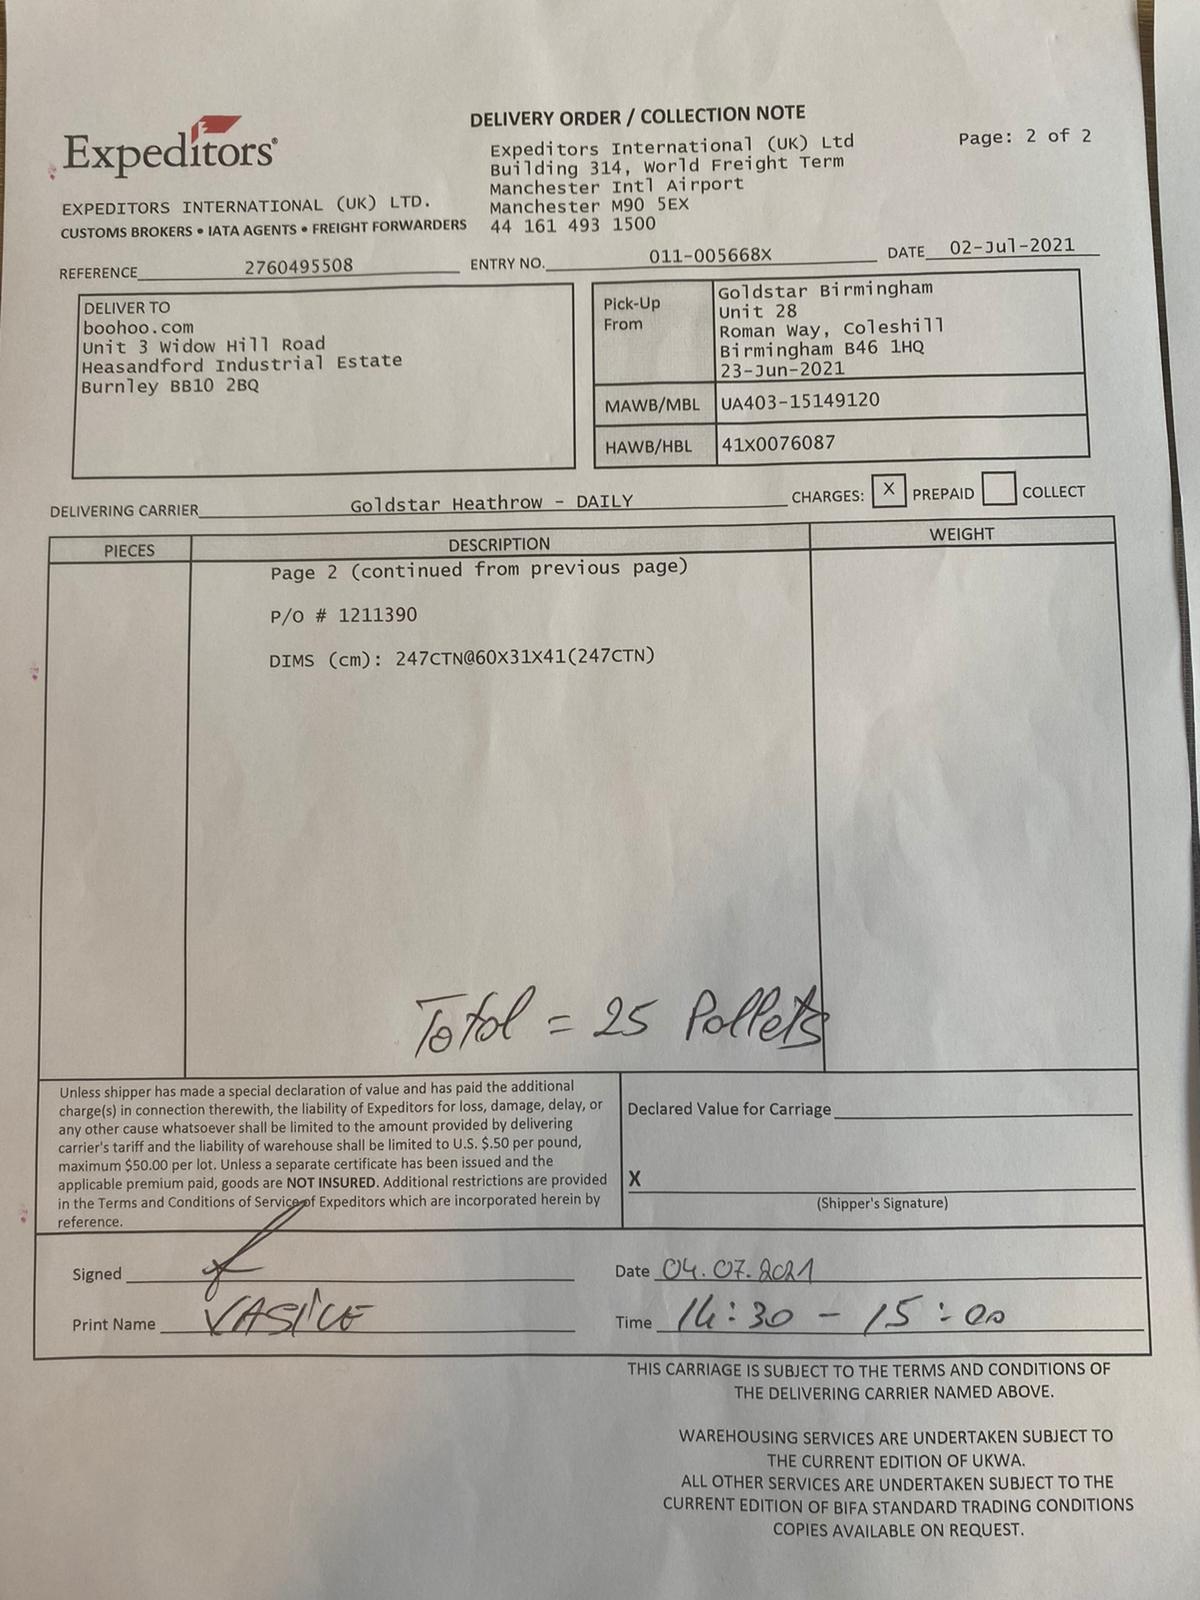 DELIVERY ORDER / COLLECTION NOTE
Expeditors®
Expeditors International (UK) Ltd
Building 314, World Freight Term
Manchester Intl Airport
Manchester M90 5EX
44 161 493 1500
Page: 2 of 2
EXPEDITORS INTERNATIONAL (UK) LTD.
CUSTOMS BROKERS • IATA AGENTS • FREIGHT FORWARDERS
REFERENCE 2760495508 ENTRY NO. 011-005668X DATE 02-Jul-2021
DELIVER TO
boohoo.com
Unit 3 Widow Hill Road
Heasandford Industrial Estate
Burnley BB10 2BQ
Pick-Up From
Goldstar Birmingham
Unit 28
Roman Way, Coleshill
Birmingham B46 1HQ
23-Jun-2021
MAWB/MBL UA403-15149120
HAWB/HBL 41X0076087
DELIVERING CARRIER Goldstar Heathrow - DAILY CHARGES: X PREPAID COLLECT
PIECES DESCRIPTION WEIGHT
Page 2 (continued from previous page)
P/O # 1211390
DIMS (cm): 247CTN@60X31X41(247CTN)
Total = 25 Pallets
Unless shipper has made a special declaration of value and has paid the additional
charge(s) in connection therewith, the liability of Expeditors for loss, damage, delay, or
any other cause whatsoever shall be limited to the amount provided by delivering
carrier's tariff and the liability of warehouse shall be limited to U.S. $.50 per pound,
maximum $50.00 per lot. Unless a separate certificate has been issued and the
applicable premium paid, goods are NOT INSURED. Additional restrictions are provided
in the Terms and Conditions of Service of Expeditors which are incorporated herein by
reference.
Declared Value for Carriage
X
(Shipper's Signature)
Signed
Date 04.07.2021
Print Name
Time 14:30 - 15:00
THIS CARRIAGE IS SUBJECT TO THE TERMS AND CONDITIONS OF
THE DELIVERING CARRIER NAMED ABOVE.
WAREHOUSING SERVICES ARE UNDERTAKEN SUBJECT TO
THE CURRENT EDITION OF UKWA.
ALL OTHER SERVICES ARE UNDERTAKEN SUBJECT TO THE
CURRENT EDITION OF BIFA STANDARD TRADING CONDITIONS
COPIES AVAILABLE ON REQUEST.